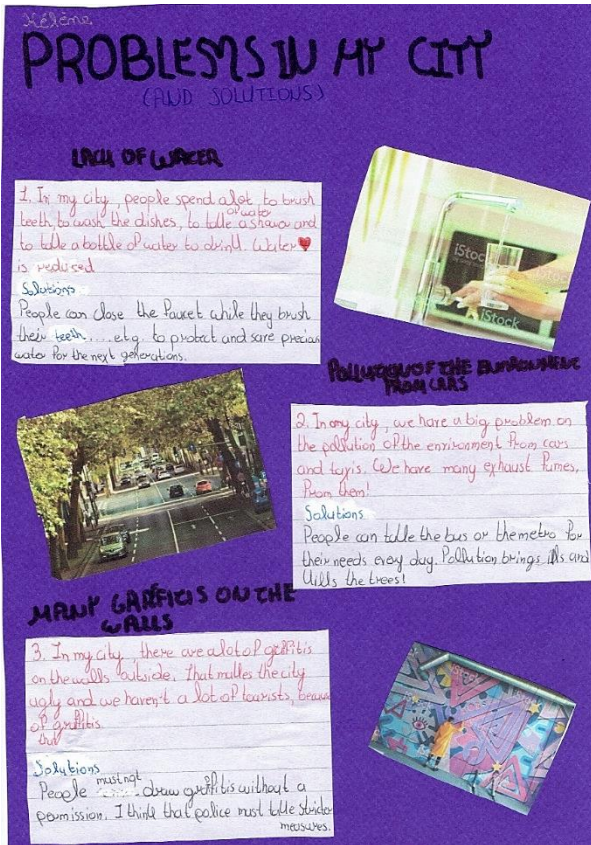 Hélène
PROBLEMS IN MY CITY
(AND SOLUTIONS)
LACK OF WATER
1. In my city, people spend a lot to brush
of water
teeth, to wash the dishes, to take a shower and
to take a bottle of water to drink. Water ♥
is reduced
Solutions
People can close the faucet while they brush
their teeth.....etc. to protect and save precious
water for the next generations.
iStock
iStock
iStock
POLLUTION OF THE ENVIRONMENT
FROM CARS
2. In my city, we have a big problem on
the pollution of the environment from cars
and taxis. We have many exhaust fumes,
from them!
Solutions
People can take the bus or the metro for
their needs every day. Pollution brings ills and
kills the trees!
MANY GRAFFITIS ON THE
WALLS
3. In my city, there are a lot of graffitis
on the walls outside. That makes the city
ugly and we haven't a lot of tourists, because
of graffitis
Solutions
must not
People draw graffitis without a
permission. I think that police must take stricter
measures.